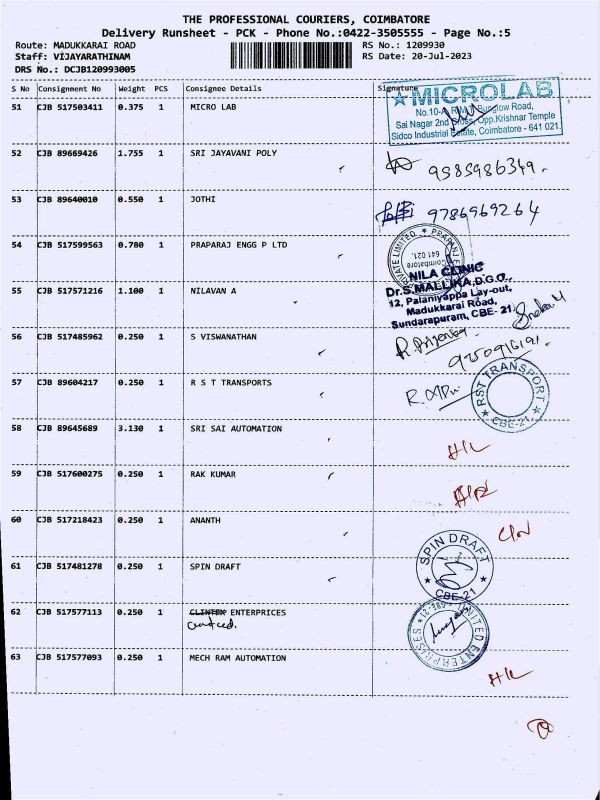 THE PROFESSIONAL COURIERS, COIMBATORE
Delivery Runsheet - PCK - Phone No.:0422-3505555 - Page No.:5
Route: MADUKKARAI ROAD RS No.: 1209930
Staff: VIJAYARATHINAM RS Date: 20-Jul-2023
DRS No.: DCJB120993005
S No Consignment No Weight PCS Consignee Details Signature
51 CJB 517503411 0.375 1 MICRO LAB
★ MICROLAB
Sai Nagar 2nd Cross, Opp.Krishnar Temple
Sidco Industrial Estate, Coimbatore - 641 021.
52 CJB 89669426 1.755 1 SRI JAYAVANI POLY
9585986349.
53 CJB 89640010 0.550 1 JOTHI
9786969264
54 CJB 517599563 0.780 1 PRAPARAJ ENGG P LTD
PRIVATE LIMITED ★
Coimbatore
641 021.
55 CJB 517571216 1.100 1 NILAVAN A
NILA CLINIC
Dr.S.MALLIKA,D.G.O.,
12, Palaniyappa Lay-out,
Madukkarai Road,
Sundarapuram, CBE- 21.
56 CJB 517485962 0.250 1 S VISWANATHAN
57 CJB 89604217 0.250 1 R S T TRANSPORTS
★ RST TRANSPORT ★
CBE-21
58 CJB 89645689 3.130 1 SRI SAI AUTOMATION
59 CJB 517600275 0.250 1 RAK KUMAR
60 CJB 517218423 0.250 1 ANANTH
61 CJB 517481278 0.250 1 SPIN DRAFT
★ SPIN DRAFT ★
CBE-21
62 CJB 517577113 0.250 1 CLINTEX ENTERPRICES
UNITED ENTERPRISES
63 CJB 517577093 0.250 1 MECH RAM AUTOMATION